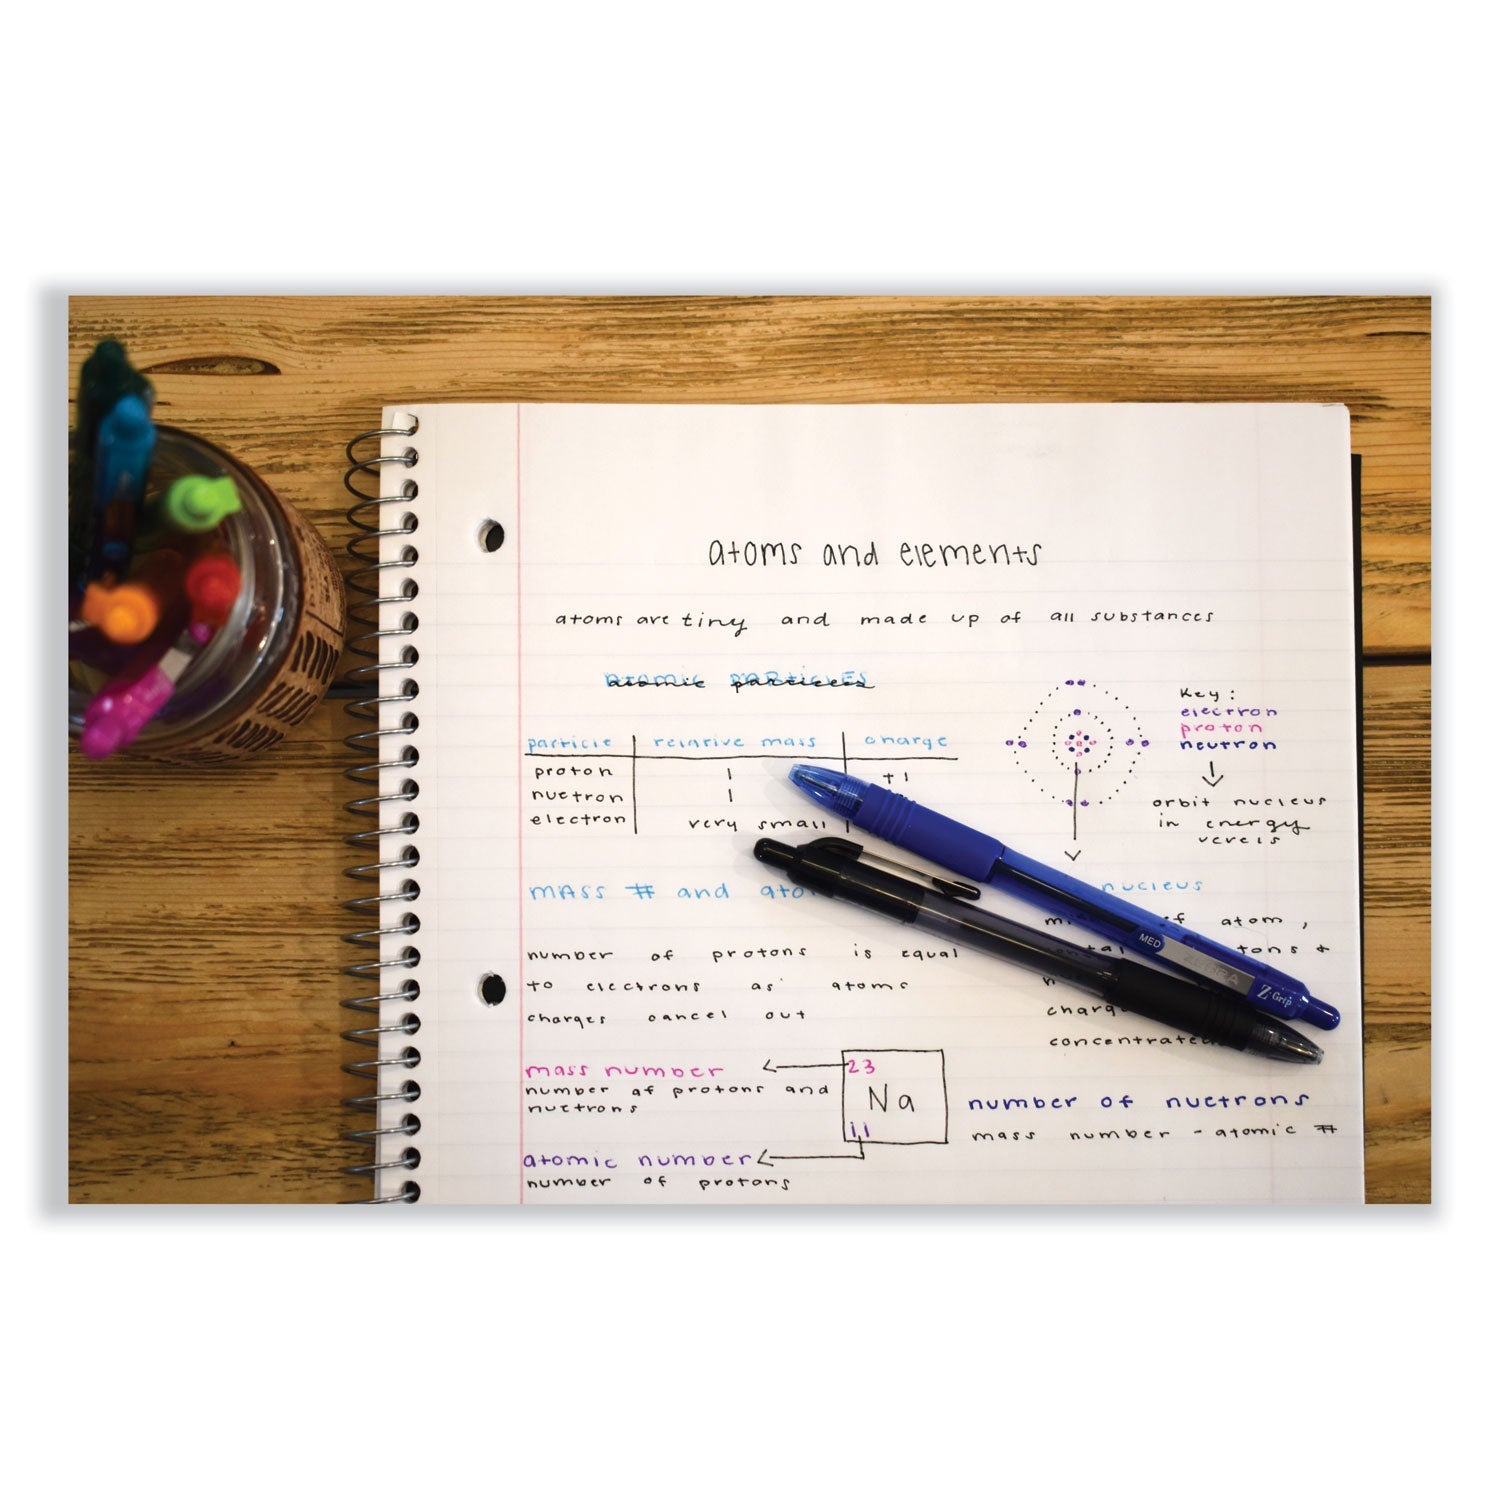 atoms and elements
atoms are tiny and made up of all substances
atomic particles
Key:
electron
proton
neutron
orbit nucleus
in energy
particle relative mass charge
proton 1 +1
nuetron 1
electron very small
mass # and
nucleus
of atom,
number of protons is equal
to electrons as atoms
charges cancel out
MED
ZEBRA
Z-Grip
mass number
number of protons and
nuetrons
23
Na
11
atomic number
number of protons
number of nuetrons
mass number - atomic #